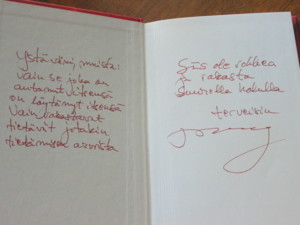 Ystäväni, muista:
vain se joka on
antanut itsensä
on löytänyt itsensä
Vain rakastavat
tietävät jotakin
tietämisen arvoista
Siis ole rohkea
ja rakasta
suurella halulla
terveisin